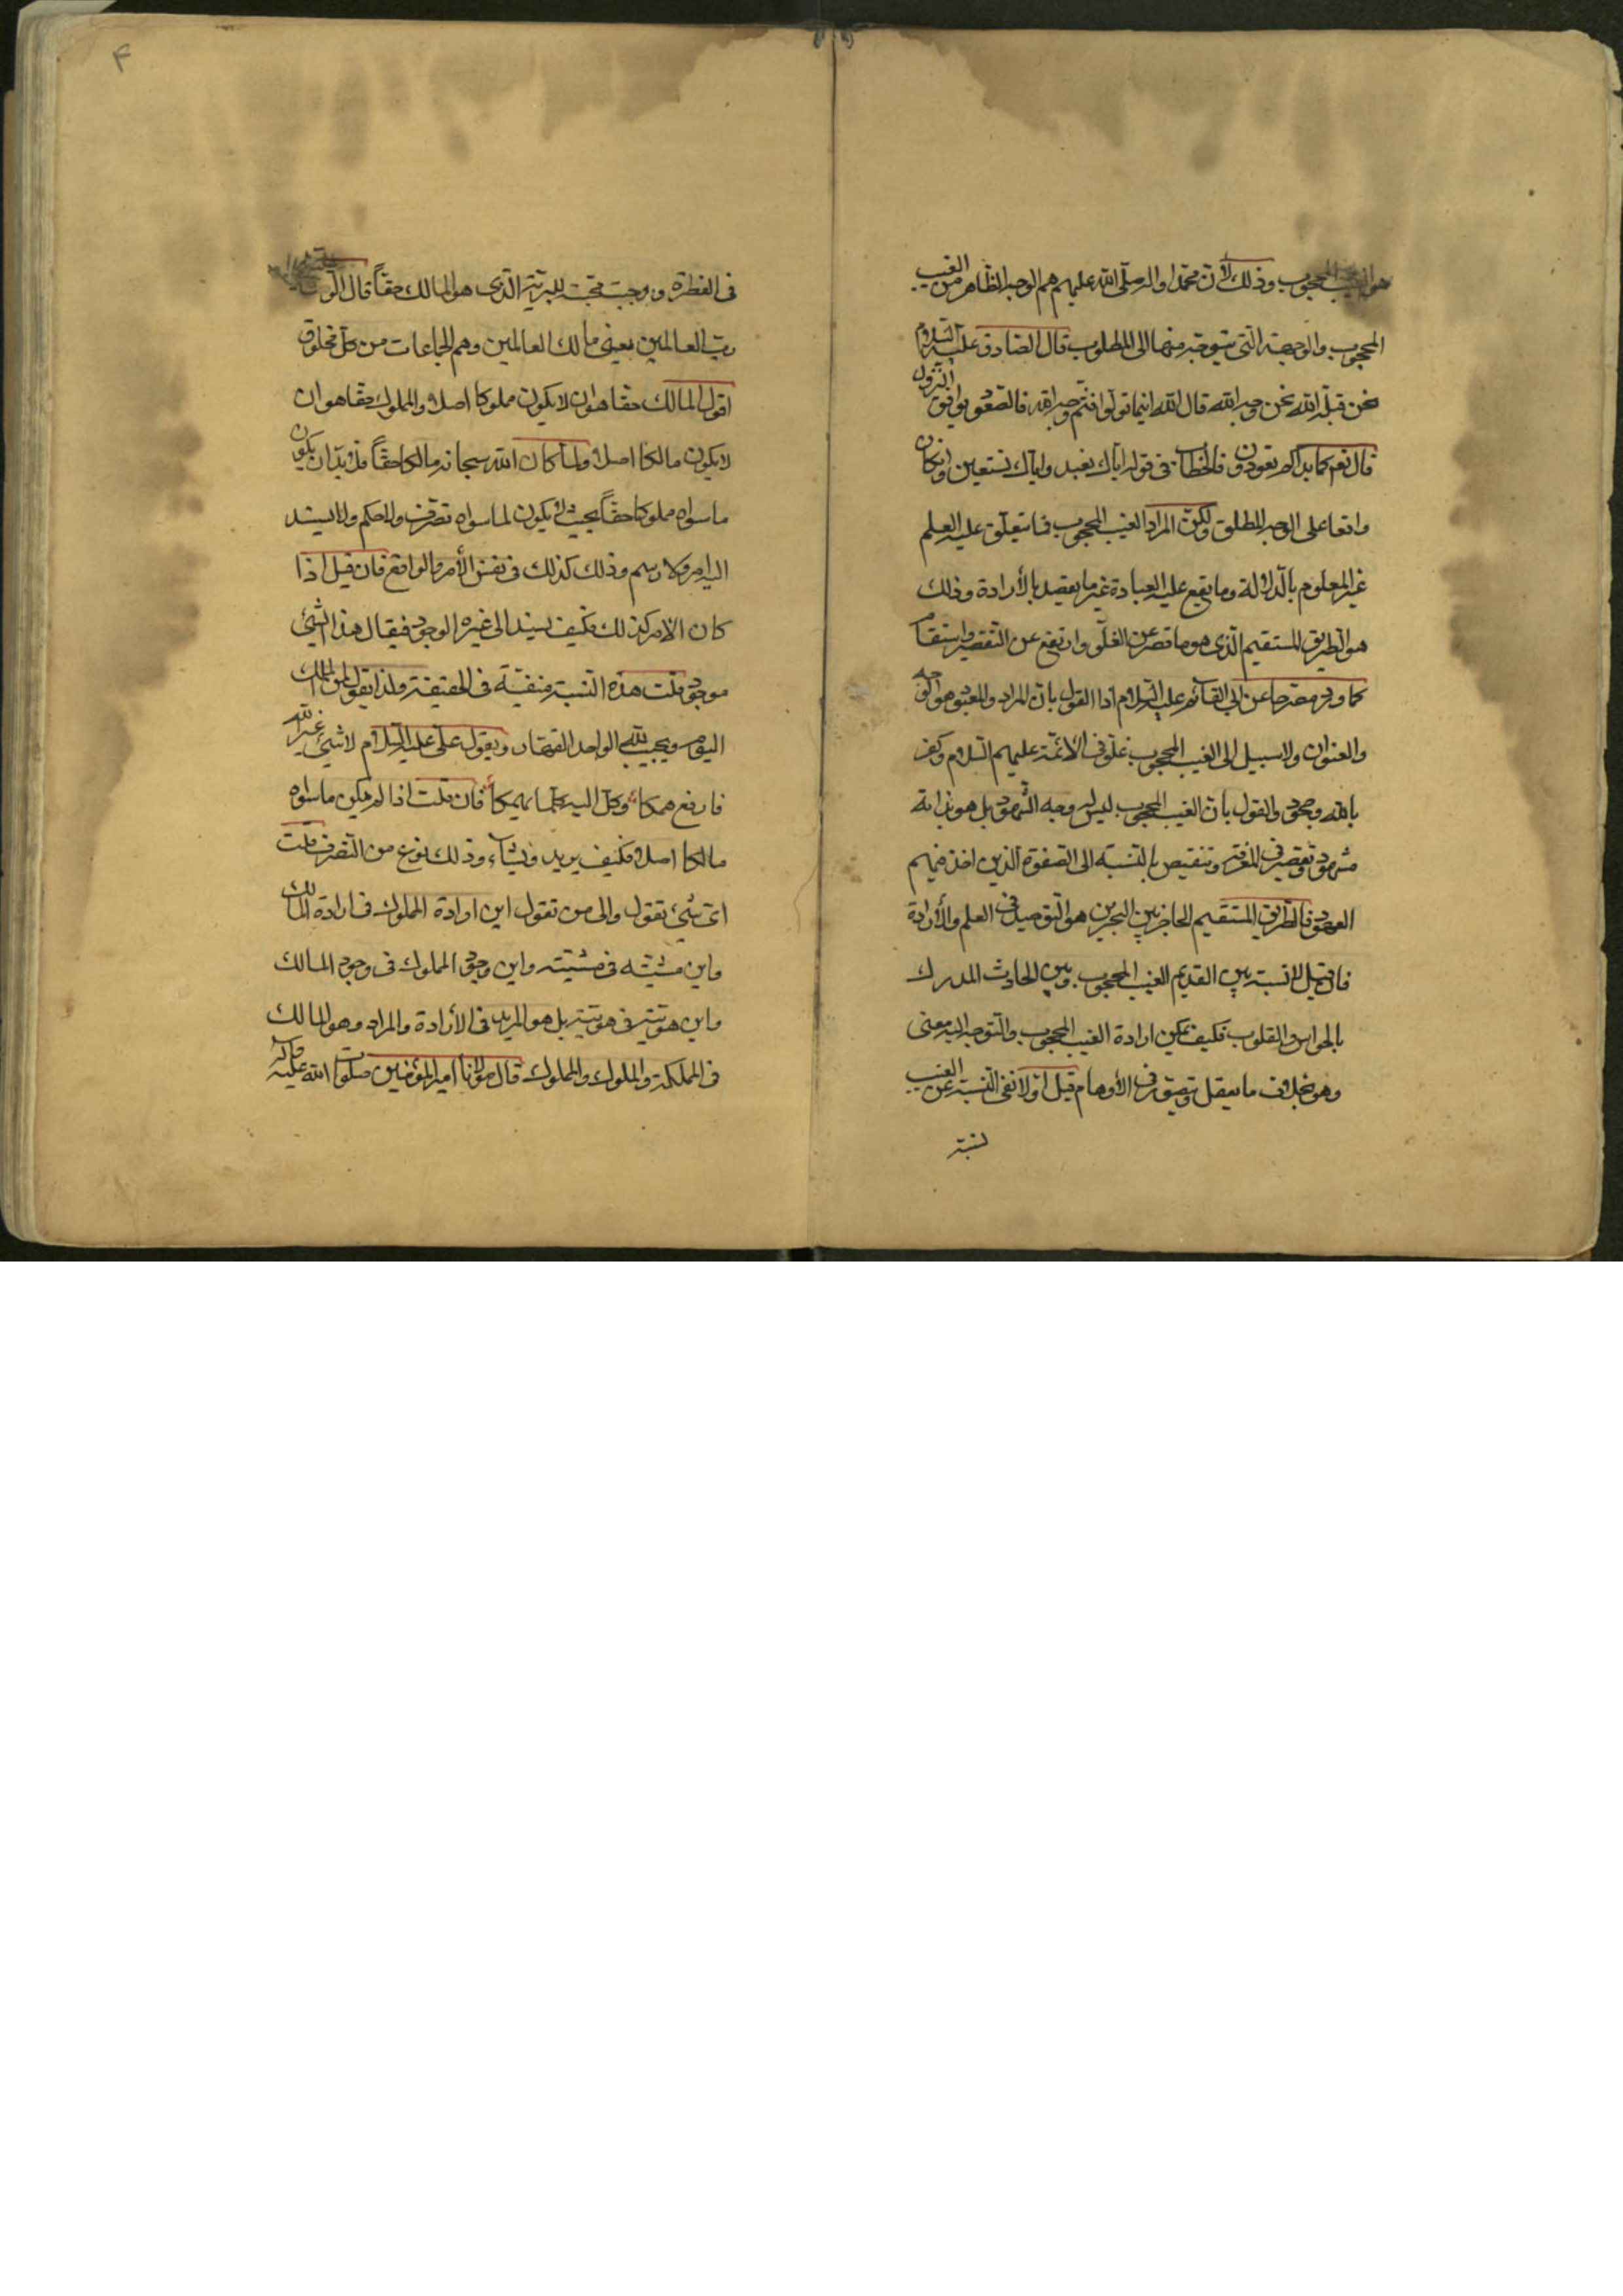 هو الغيب المحجوب وذلك لأن محمدا واله صلى الله عليهم هم الوجه الظاهر من الغيب
المحجوب والوجهة التى يتوجه منها الى المطلوب قال الصادق عليه السلام
نحن قبلة الله نحن وجه الله قال الله اينما تولوا فثم وجه الله فالصعود يوافق النزول
قال نعم كما بداكم تعودون فالخطاب فى قوله اياك نعبد واياك نستعين وان كان
واقعا على الوجه المطلق ولكن المراد الغيب المحجوب فما يتعلق عليه العلم
غير المعلوم بالدلالة وما يقع عليه العبادة غير ما يقصد بالأرادة وذلك
هو الطريق المستقيم الذى هو ما قصر عن الغلو وارتفع عن التقصير واستقام
كما ورد مصرحا عن ابى القائم عليه السلام اذا القول بان المراد والمعبود هو الوجه
والعنوان ولا سبيل الى الغيب المحجوب غلو فى الائمة عليهم السلام وكفر
بالله وجحود والقول بان الغيب المحجوب ليس له وجه الشهود بل هو بذاته
مشهود تقصير فى المعرفة وتنقيص بالنسبة الى الصفوة الذين اخذ فيهم
العهود فالطريق المستقيم الحاجز بين البحرين هو التوصيل فى العلم والأرادة
فان قيل لا نسبة بين القديم الغيب المحجوب وبين الحادث المدرك
بالحواس والقلوب فكيف يمكن ارادة الغيب المحجوب والتوجه اليه معنى
وهو بخلاف ما يعقل ويتصور فى الأوهام قيل اولا نفى النسبة عن الغيب
نسبة
۴
فى الفطرة ووجبت محبته للبرية الذى هو المالك حقاً قال
رب العالمين يعنى مالك العالمين وهم الجماعات من كل مخلوق
اقول المالك حقا هو ان لا يكون مملوكا اصلا والمملوك حقا هو ان
لا يكون مالكا اصلا ولما كان الله سبحانه مالكا حقاً فلابد ان يكون
ما سواه مملوكا حقاً بحيث لا يكون لما سواه تصرف ولا حكم ولا يسند
اليه امر ولا رسم وذلك كذلك فى نفس الأمر والواقع فان قيل اذا
كان الامر كذلك فكيف يسند الى غيره الوجود فيقال هذا الشئ
موجود قلت هذه النسبة منفية فى الحقيقة ولذا يقول لمن الملك
اليوم ويجيب لله الواحد القهار ويقول على عليه السلام لا شئ غير الله
فارفع همكا وكل اليه كلما يهمكا فان قلت اذا لم يكن ما سواه
مالكا اصلا فكيف يريد ويشاء وذلك نوع من التصرف قلت
اى شئ تقول والى من تقول اين ارادة المملوك فى ارادة المالك
واين مشيته فى مشيته واين وجود المملوك فى وجود المالك
واين هويته فى هويته بل هو المريد فى الأرادة والمراد وهو المالك
فى المملكة والملوك والمملوك قال مولانا امير المؤمنين صلوات الله عليه واله